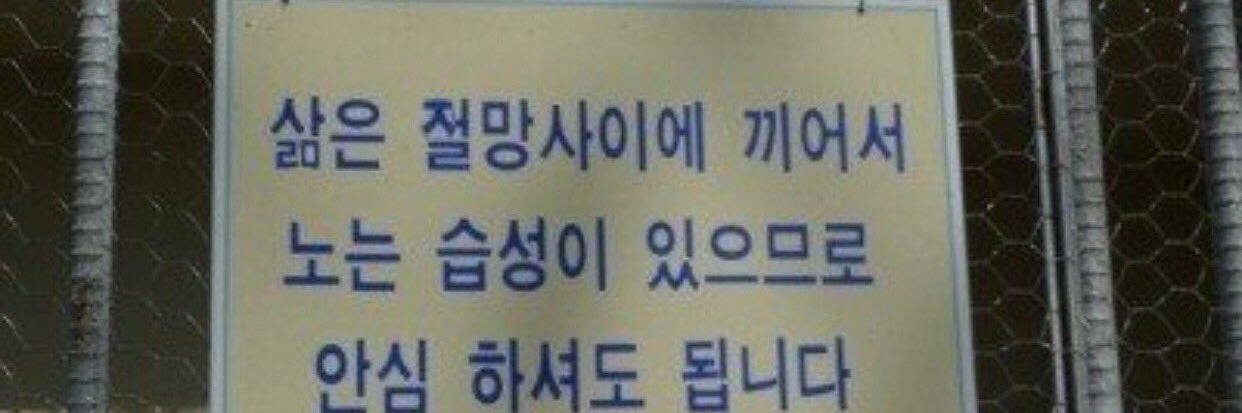 삶은 절망사이에 끼어서
노는 습성이 있으므로
안심 하셔도 됩니다